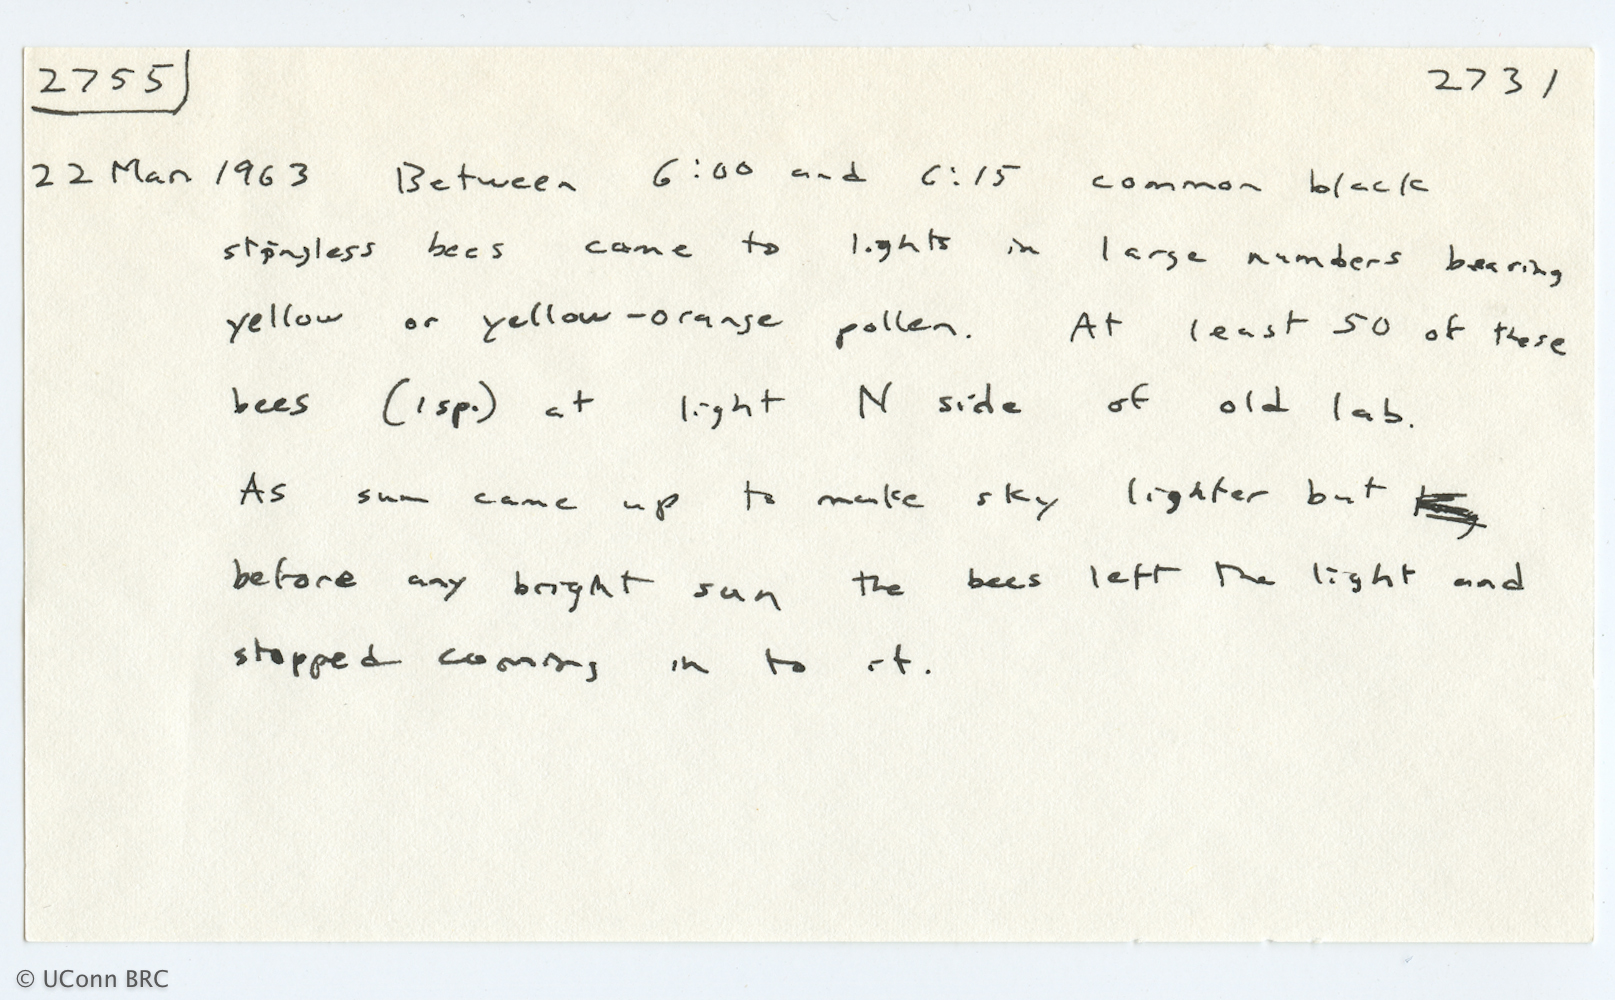 2755 2731
22 Mar 1963 Between 6:00 and 6:15 common black
stingless bees came to lights in large numbers bearing
yellow or yellow-orange pollen. At least 50 of these
bees (1 sp.) at light N side of old lab.
As sun came up to make sky lighter but
before any bright sun the bees left the light and
stopped coming in to it.
© UConn BRC